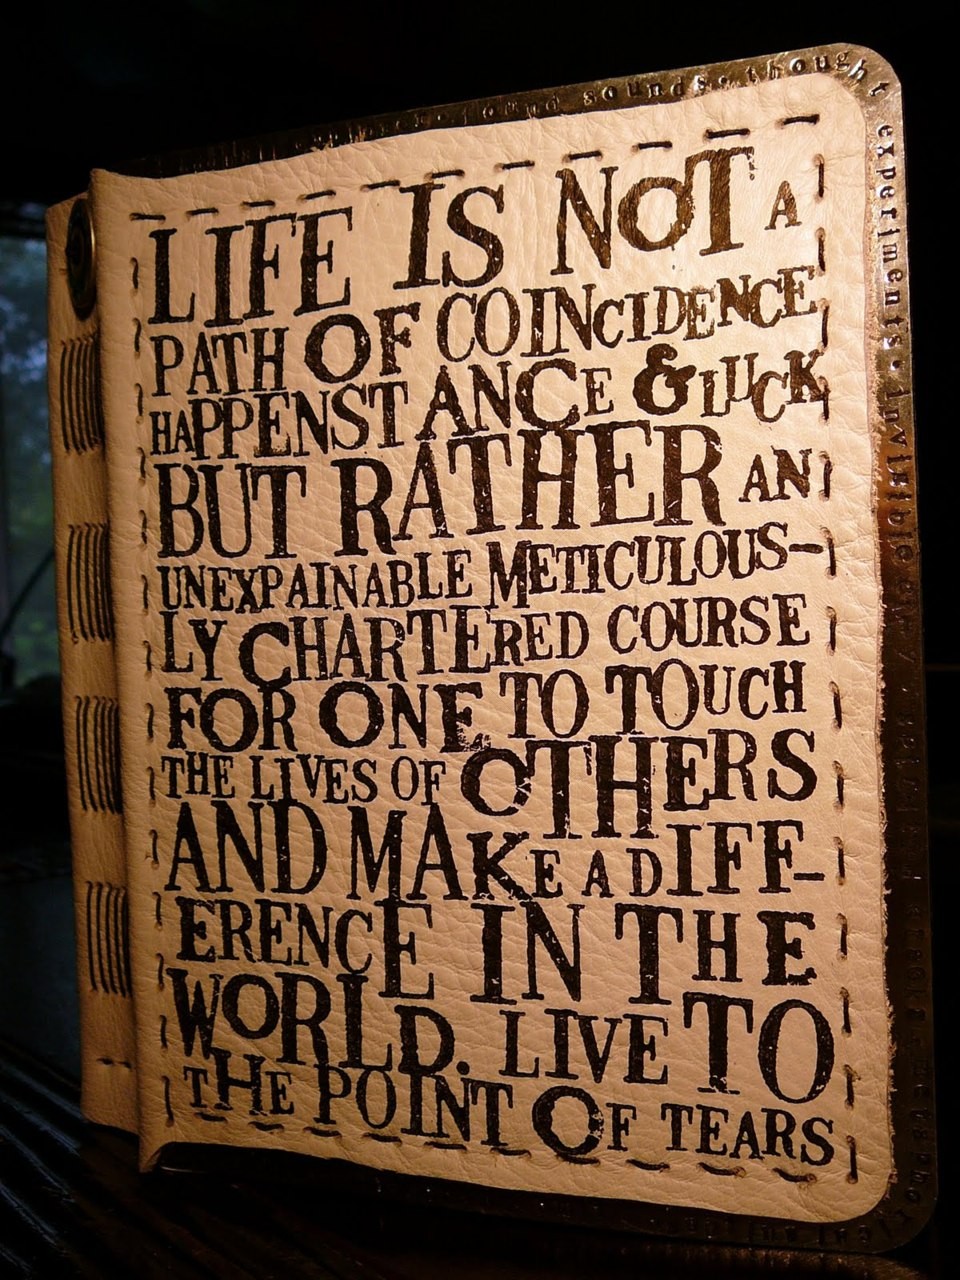 found sounds • thought
experiments • invisible
LIFE IS NOT A
PATH OF COINCIDENCE
HAPPENSTANCE & LUCK
BUT RATHER AN
UNEXPAINABLE METICULOUS-
LY CHARTERED COURSE
FOR ONE TO TOUCH
THE LIVES OF OTHERS
AND MAKE A DIFF-
ERENCE IN THE
WORLD. LIVE TO
THE POINT OF TEARS